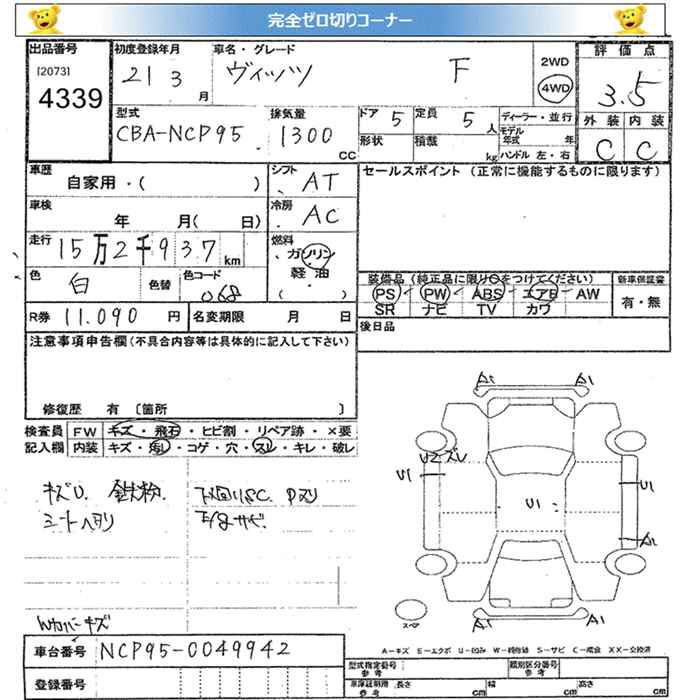 完全ゼロ切りコーナー
出品番号 初度登録年月 車名・グレード 評価点
[2073] 4339 21 3月 ヴィッツ F 2WD 4WD 3.5
型式 排気量 ドア 定員 ディーラー・並行 外装 内装
CBA-NCP95 1300 CC 5 5人 モデル年式 年 C C
形状 積載 kg ハンドル 左・右
車歴 シフト セールスポイント (正常に機能するものに限ります)
自家用・( ) AT
車検 冷房
年 月( 日) AC
走行 15万2千937 km 燃料 ガソリン
軽・油
( )
色 白 色替 色コード 068
装備品(純正品に限り○をつけてください) 新車保証書
PS PW ABS エアB AW 有・無
SR ナビ TV カワ
R券 11.090 円 名変期限 月 日 後日品
注意事項申告欄(不具合内容等は具体的に記入して下さい)
修復歴 有 [箇所 ]
検査員 FW キズ・飛石・ヒビ割・リペア跡・×要
記入欄 内装 キズ・汚レ・コゲ・穴・スレ・キレ・破レ
キズU 鉄粉 下メ回リSC Pヌリ
シートヘタリ
A2 A1
U2 ズレ
U1 U1 U1
A2
A1 A1
スペア
A-キズ E-エクボ U-凹み W-補修跡 S-サビ C-腐食 XX-交換済
Wカバーキズ
車台番号 NCP95-0049942
登録番号
型式指定番号 参考 類別区分番号 参考
車庫証明用 参考 長さ cm 幅 cm 高さ cm